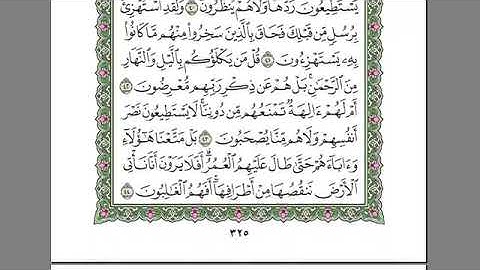 يَسْتَطِيعُونَ رَدَّهَا وَلَا هُمْ يُنظَرُونَ ٤٠ وَلَقَدِ ٱسْتُهْزِئَ
بِرُسُلٍ مِّن قَبْلِكَ فَحَاقَ بِٱلَّذِينَ سَخِرُوا۟ مِنْهُم مَّا كَانُوا۟
بِهِۦ يَسْتَهْزِءُونَ ٤١ قُلْ مَن يَكْلَؤُكُم بِٱلَّيْلِ وَٱلنَّهَارِ
مِنَ ٱلرَّحْمَٰنِ ۗ بَلْ هُمْ عَن ذِكْرِ رَبِّهِم مُّعْرِضُونَ ٤٢
أَمْ لَهُمْ ءَالِهَةٌ تَمْنَعُهُم مِّن دُونِنَا ۚ لَا يَسْتَطِيعُونَ نَصْرَ
أَنفُسِهِمْ وَلَا هُم مِّنَّا يُصْحَبُونَ ٤٣ بَلْ مَتَّعْنَا هَٰٓؤُلَآءِ
وَءَابَآءَهُمْ حَتَّىٰ طَالَ عَلَيْهِمُ ٱلْعُمُرُ ۗ أَفَلَا يَرَوْنَ أَنَّا نَأْتِى
ٱلْأَرْضَ نَنقُصُهَا مِنْ أَطْرَافِهَآ ۚ أَفَهُمُ ٱلْغَٰلِبُونَ ٤٤
٣٢٥